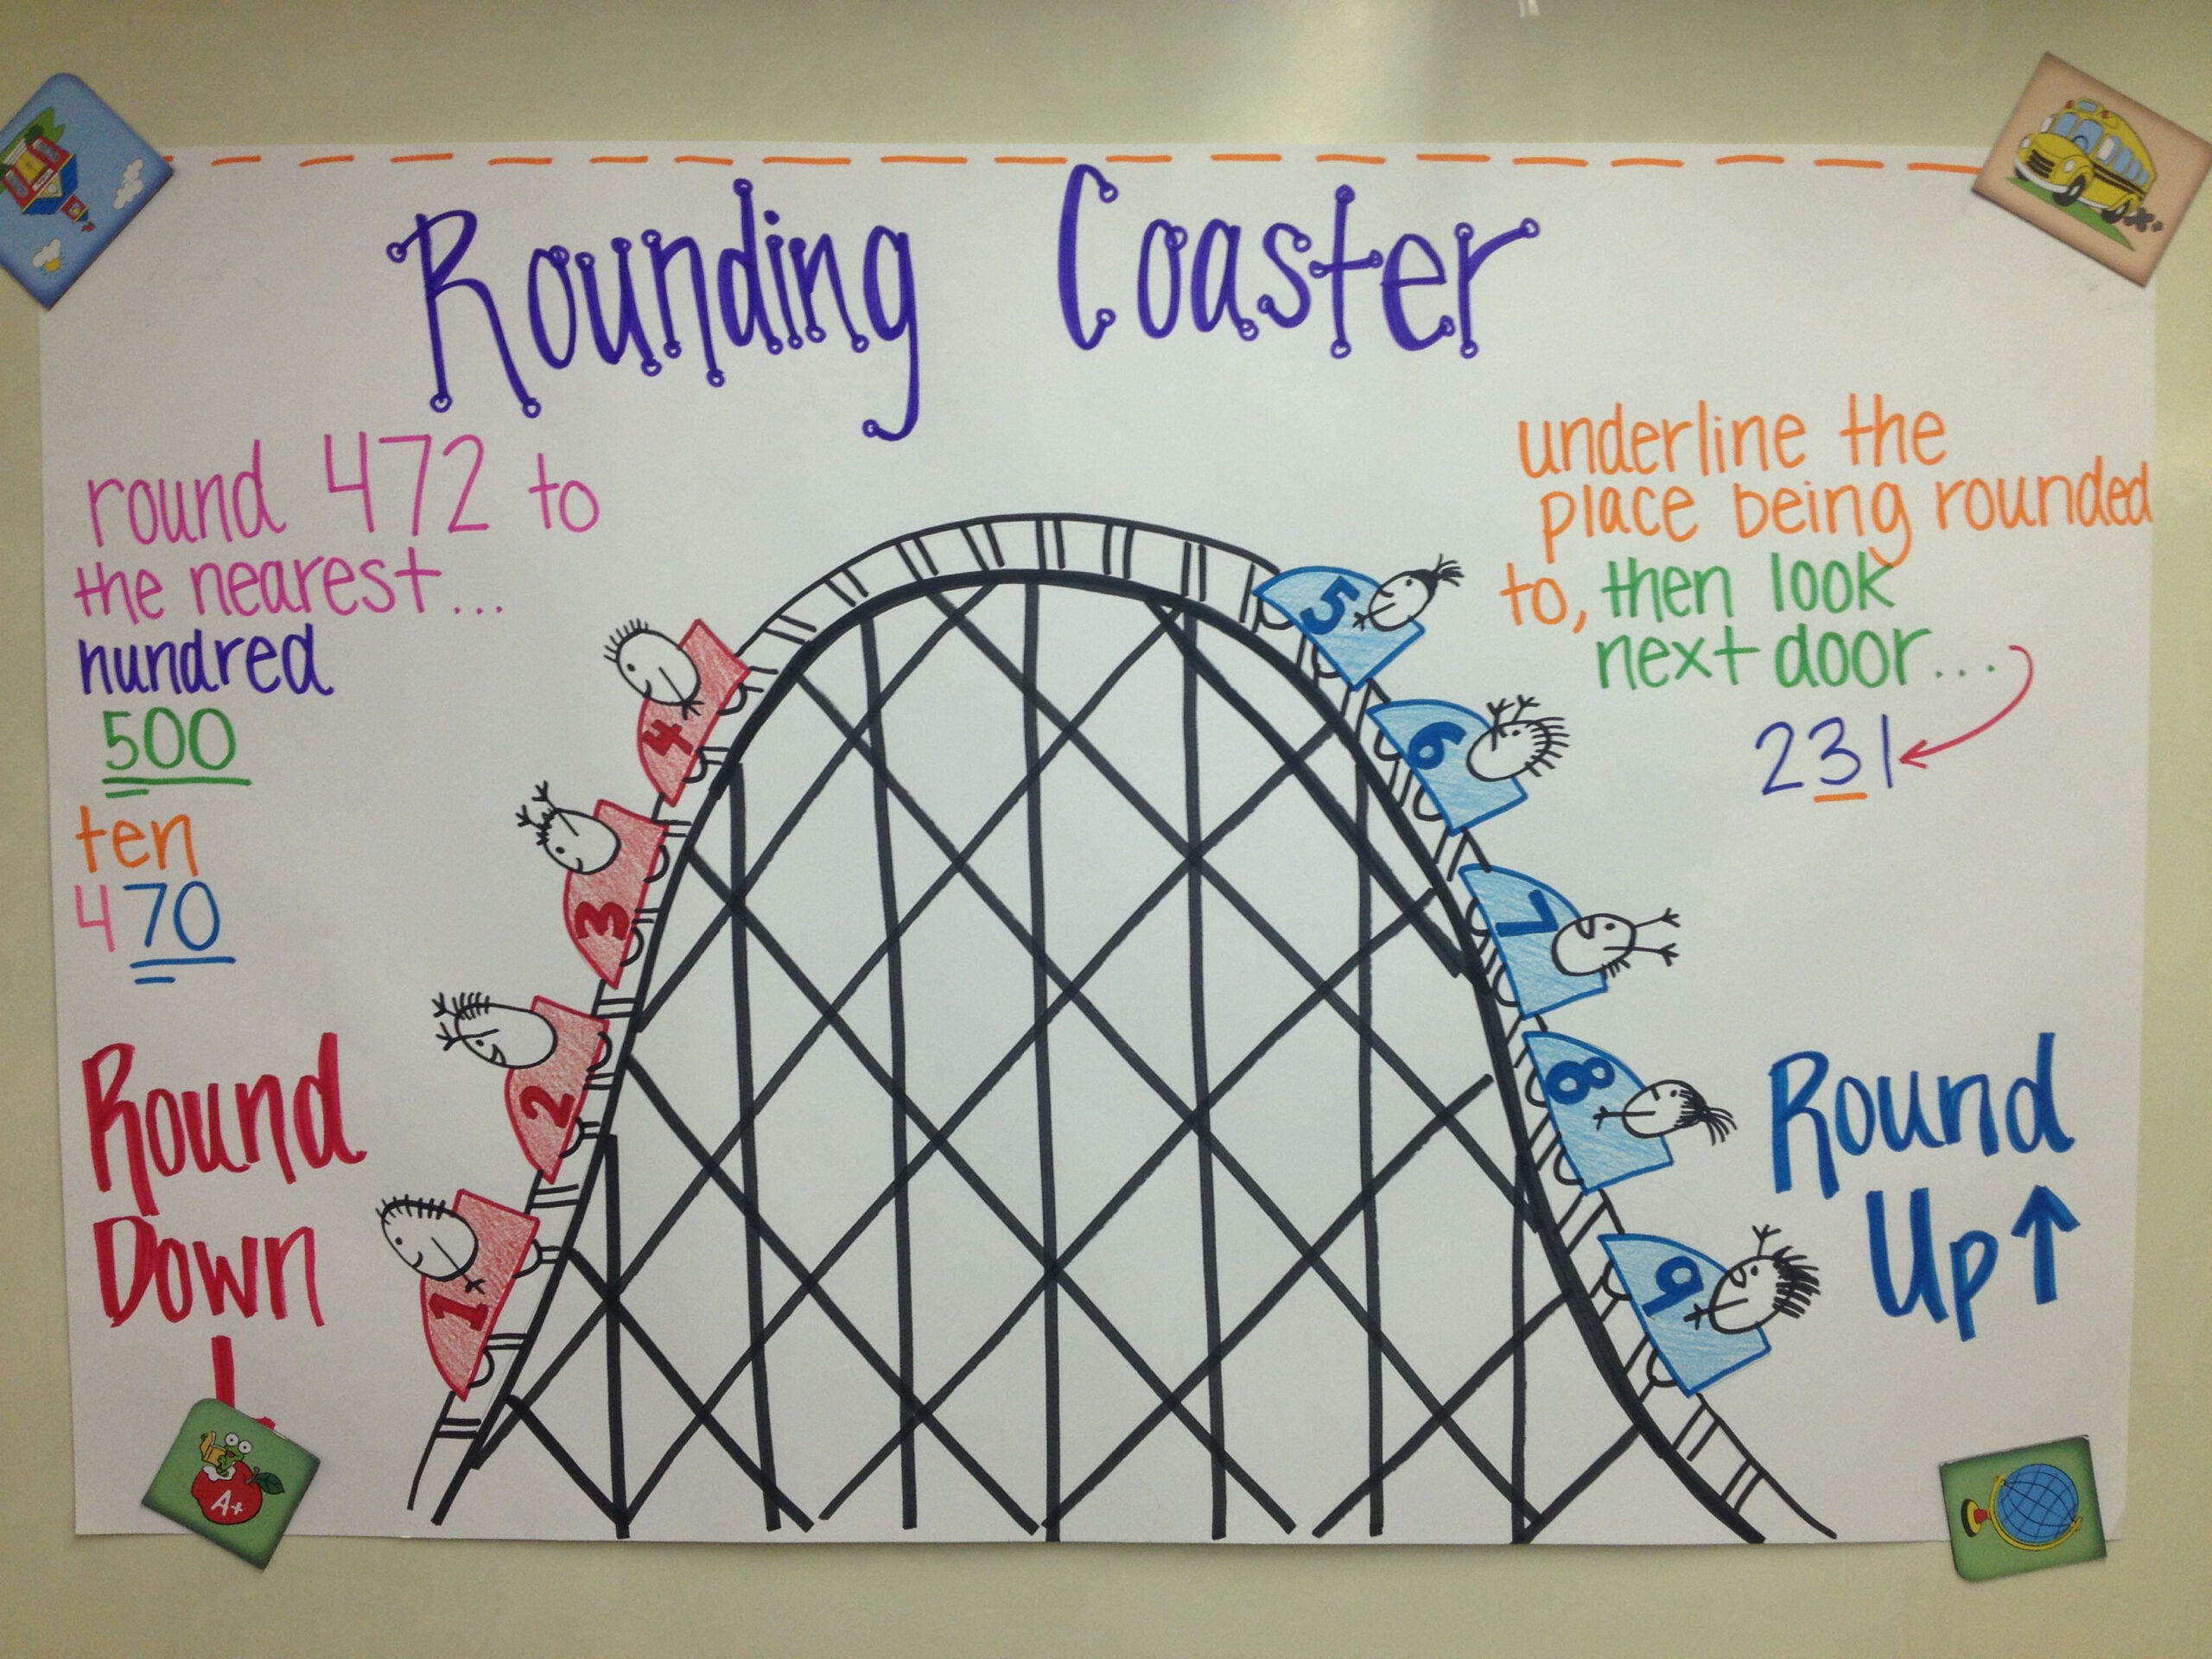 Rounding Coaster
round 472 to
the nearest...
hundred
500
ten
470
Round
Down
underline the
place being rounded
to, then look
next door...
231
4
3
2
1
5
6
7
8
9
Round
Up↑
A+